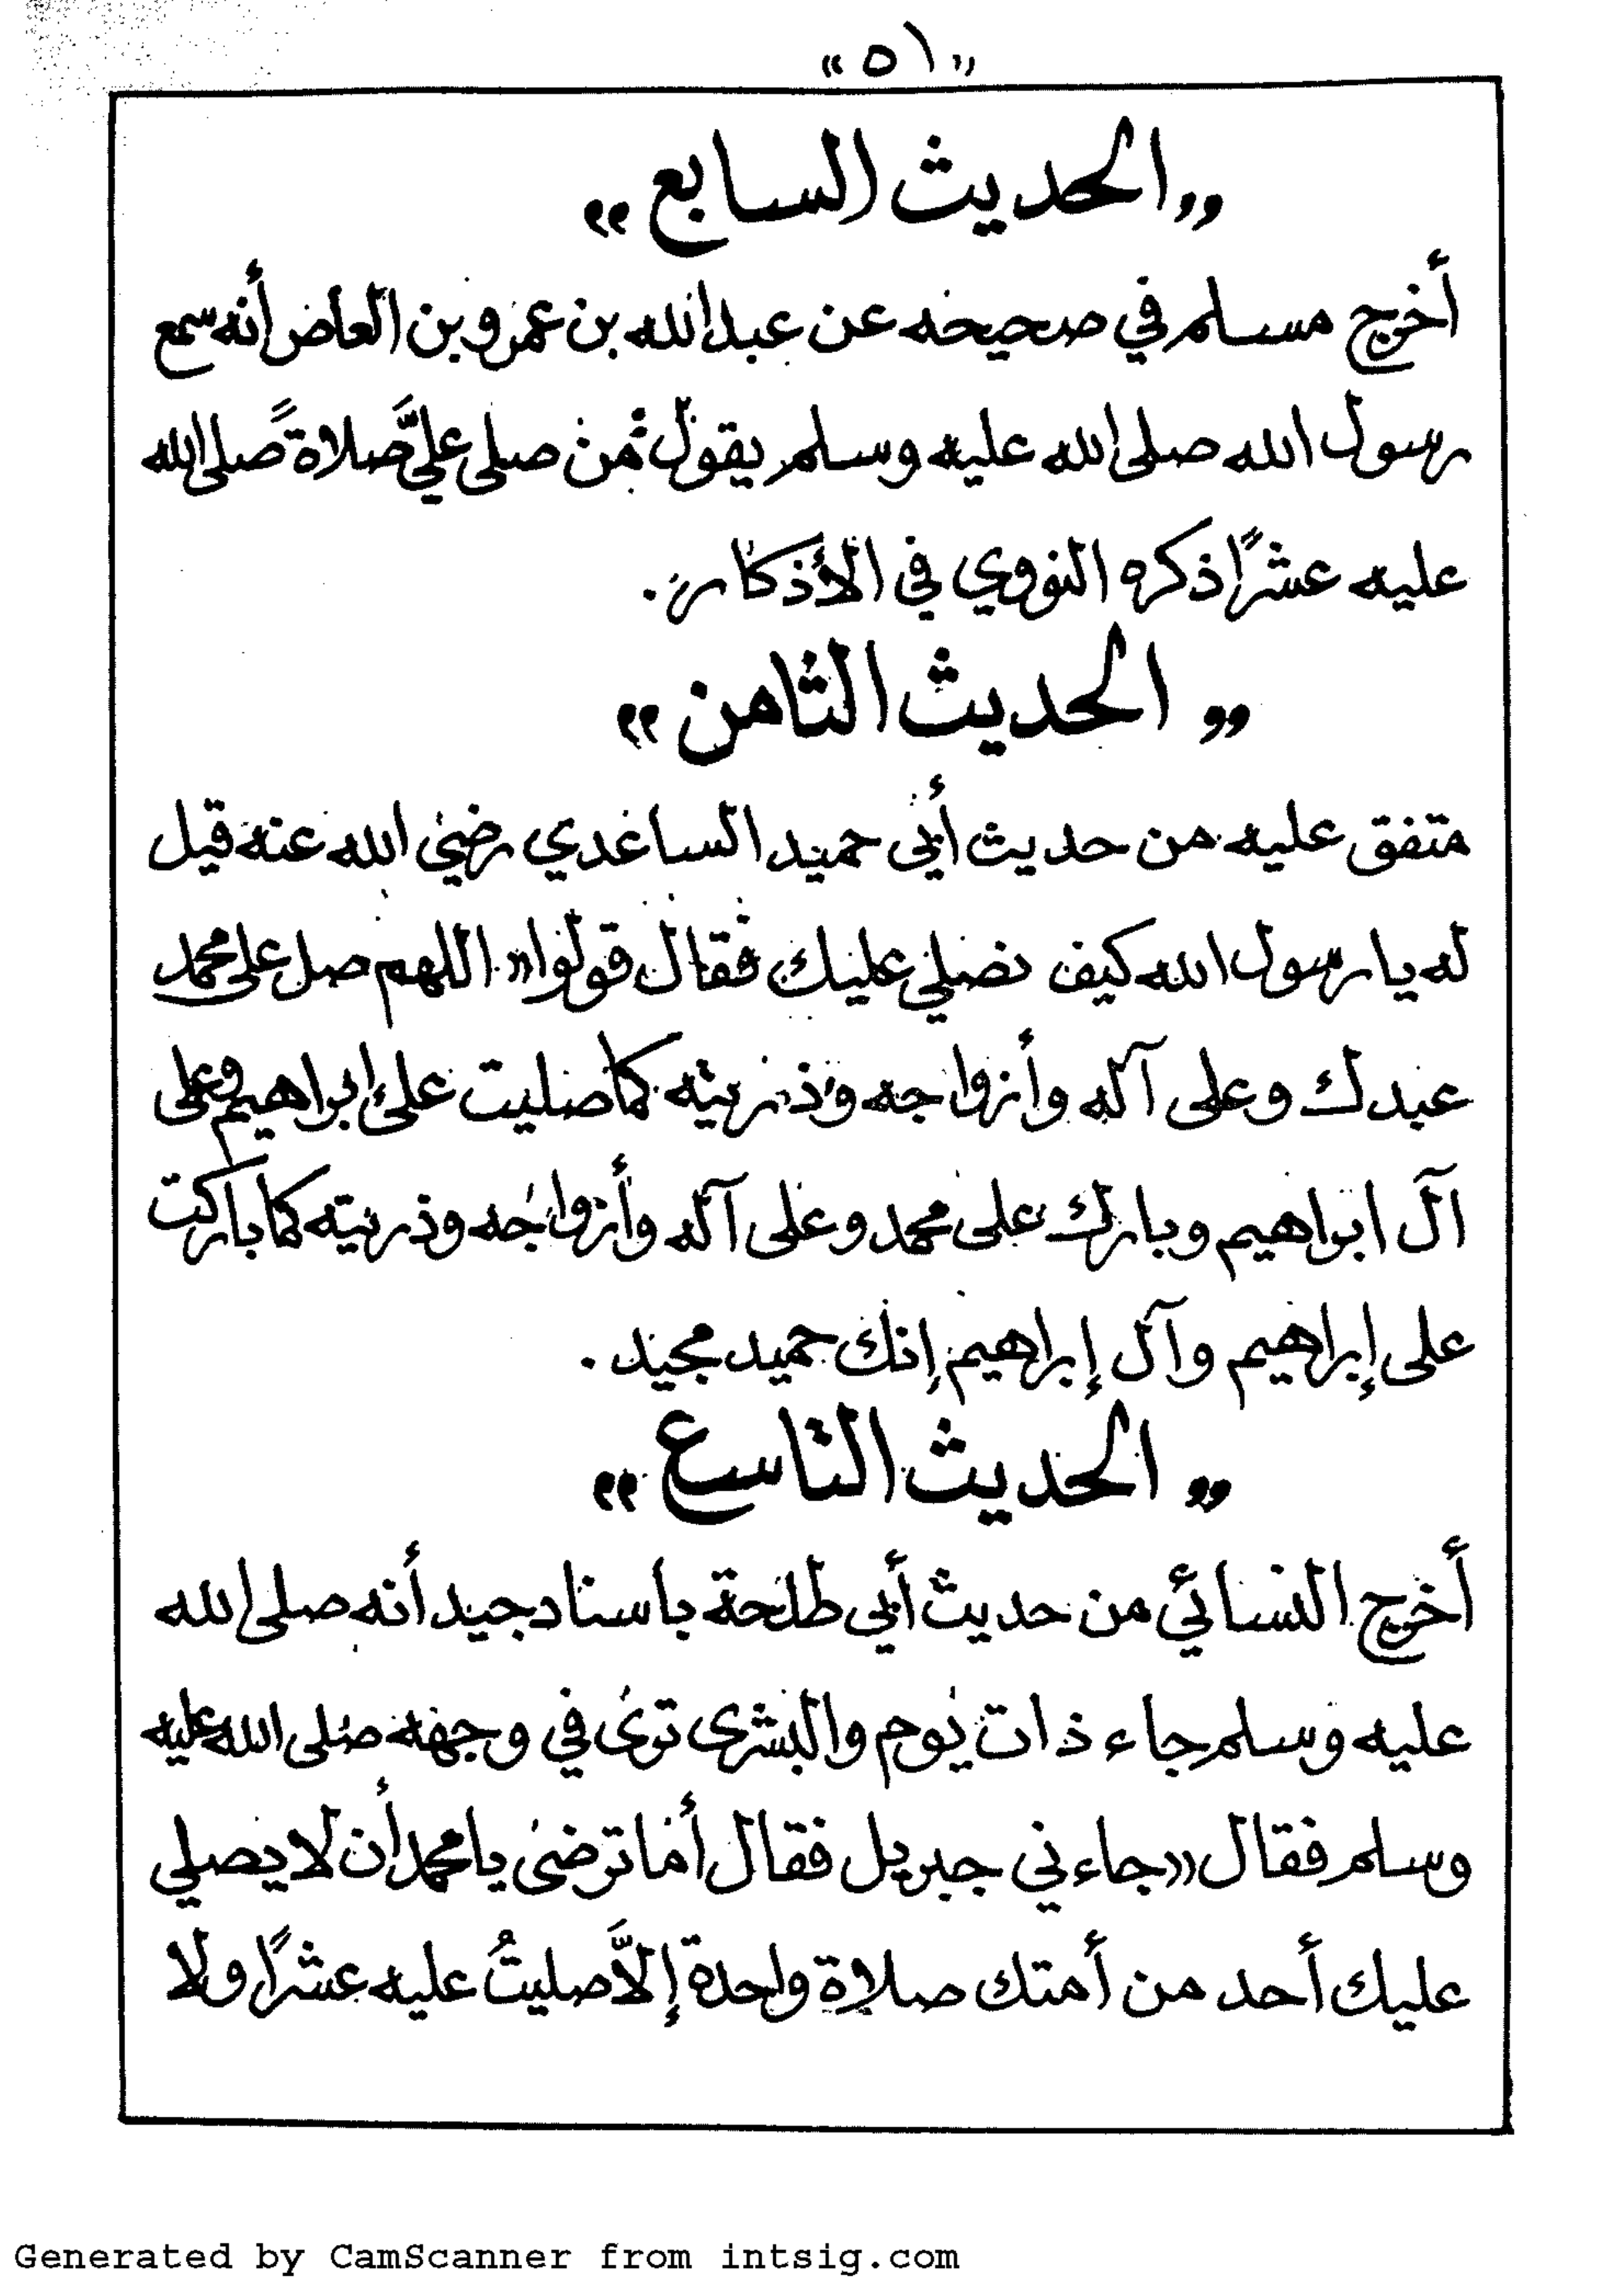 «٥١»
«الحديث السابع»
أخرج مسلم في صحيحه عن عبد الله بن عمرو بن العاص أنه سمع
رسول الله صلى الله عليه وسلم يقول: من صلى عليَّ صلاةً صلى الله
عليه عشرًا ذكره النووي في الأذكار.
«الحديث الثامن»
متفق عليه من حديث أبي حميد الساعدي رضي الله عنه قيل
له يا رسول الله كيف نصلي عليك فقال قولوا «اللهم صل على محمد
عبدك وعلى آله وأزواجه وذريته كما صليت على ابراهيم وعلى
آل ابراهيم وبارك على محمد وعلى آله وأزواجه وذريته كما باركت
على إبراهيم وآل إبراهيم إنك حميد مجيد.
«الحديث التاسع»
أخرج النسائي من حديث أبي طلحة باسناد جيد أنه صلى الله
عليه وسلم جاء ذات يوم والبشرى ترى في وجهه صلى الله عليه
وسلم فقال «جاءني جبريل فقال أما ترضى يا محمد أن لا يصلي
عليك أحد من أمتك صلاة واحدة إلاَّ صليتُ عليه عشرًا ولا
Generated by CamScanner from intsig.com